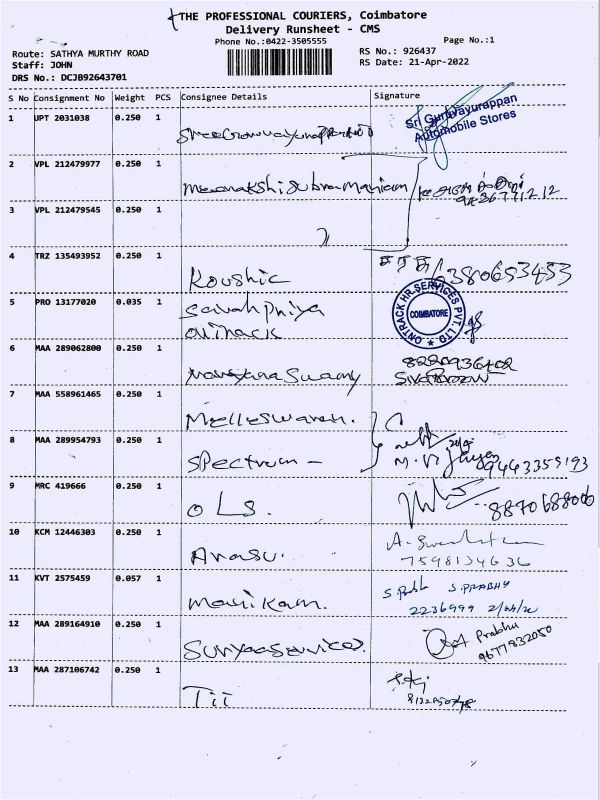 THE PROFESSIONAL COURIERS, Coimbatore
Delivery Runsheet - CMS
Phone No.:0422-3505555
Page No.:1
Route: SATHYA MURTHY ROAD
RS No.: 926437
Staff: JOHN
RS Date: 21-Apr-2022
DRS No.: DCJB92643701
S No Consignment No Weight PCS Consignee Details Signature
1 UPT 2031038 0.250 1
Sri Guruvayurappan
Automobile Stores
2 VPL 212479977 0.250 1
Meenakshisubramaniam
3 VPL 212479545 0.250 1
4 TRZ 135493952 0.250 1
Koushic
5 PRO 13177020 0.035 1
ONTRACK HR SERVICES PVT. LTD
COIMBATORE
6 MAA 289062800 0.250 1
Narayana Swamy
7 MAA 558961465 0.250 1
Malleswaran.
8 MAA 289954793 0.250 1
Spectrum - 9443355193
9 MRC 419666 0.250 1
OLS. 8870688006
10 KCM 12446303 0.250 1
Arasu.
7598134636
11 KVT 2575459 0.057 1
Manikam. S. PRABHY
2236999
12 MAA 289164910 0.250 1
Suryaservices. Prabhu
9677832050
13 MAA 287106742 0.250 1
Tii